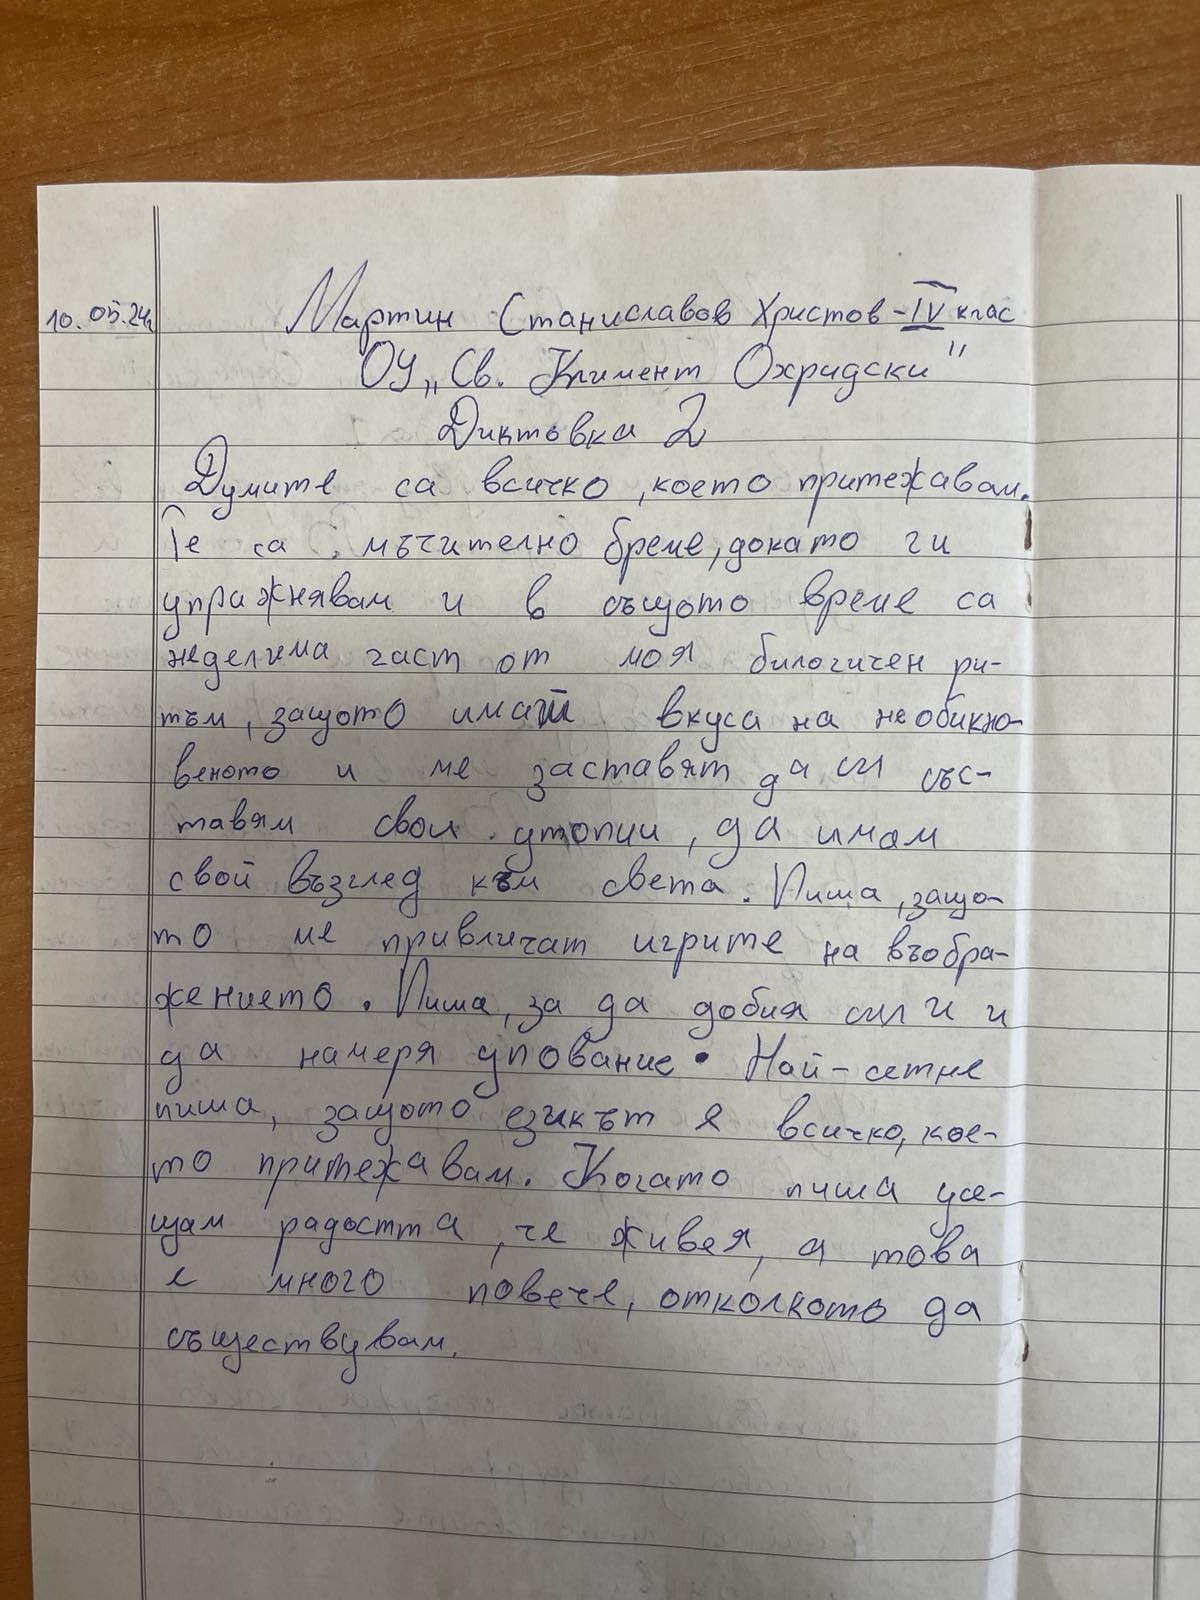 10.05.24г.
Мартин Станиславов Христов - IV клас
ОУ „Св. Климент Охридски"
Диктовка 2
Думите са всичко, което притежавам.
Те са мъчително бреме, докато ги
упражнявам и в същото време са
неделима част от моя билогичен ри-
тъм, защото имат вкуса на необикно-
веното и ме заставят да си със-
тавям свои утопии, да имам
свой възглед към света. Пиша, защо-
то ме привличат игрите на въобра-
жението. Пиша, за да добия сили и
да намеря упование. Най-сетне
пиша, защото езикът я всичко, кое-
то притежавам. Когато пиша усе-
щам радостта, че живея, а това
е много повече, отколкото да
съществувам.